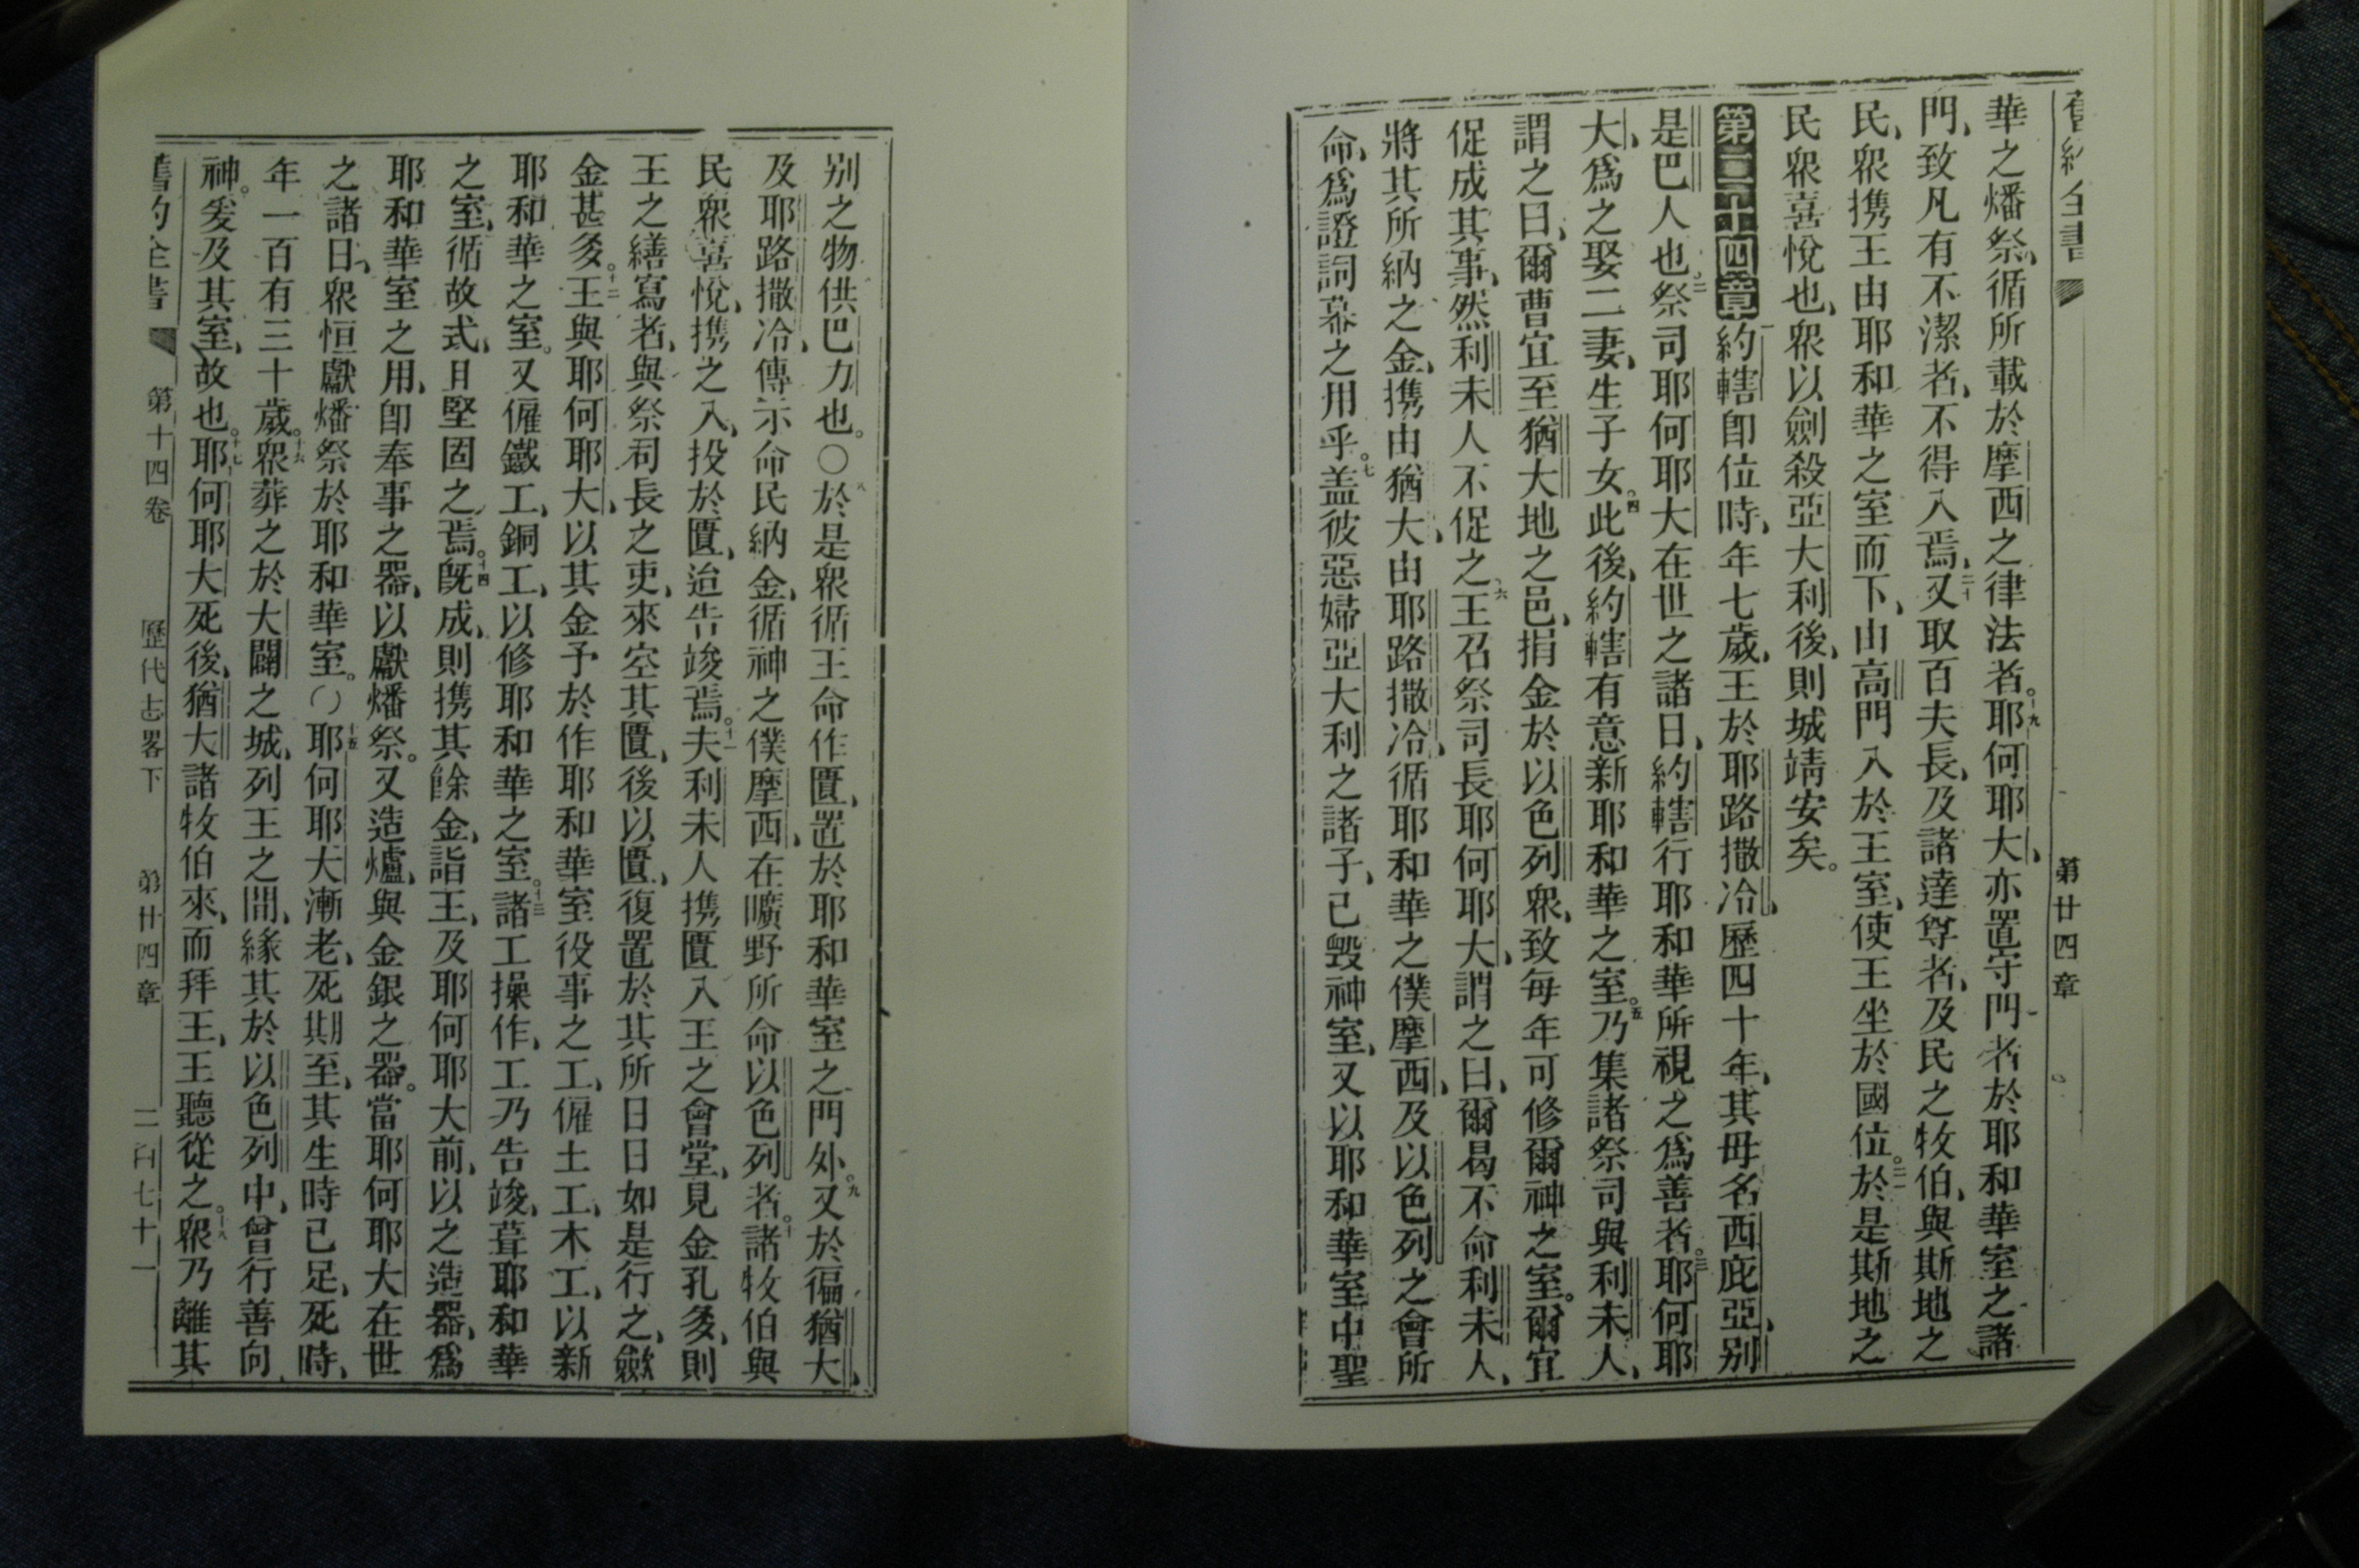 舊約全書 第廿四章
華之燔祭、循所載於摩西之律法者。十九耶何耶大、亦置守門者於耶和華室之諸
門、致凡有不潔者、不得入焉、二十又取百夫長、及諸達尊者、及民之牧伯、與斯地之
民、衆携王由耶和華之室而下、由高門入於王室、使王坐於國位。二一於是斯地之
民衆喜悅也、衆以劍殺亞大利後、則城靖安矣。
第二十四章 一約轄卽位時、年七歲、王於耶路撒冷、歷四十年、其母名西庇亞、别
是巴人也。二祭司耶何耶大在世之諸日、約轄行耶和華所視之爲善者。三耶何耶
大、爲之娶二妻、生子女。四此後、約轄有意新耶和華之室。五乃集諸祭司與利未人、
謂之曰、爾曹宜至猶大地之邑、捐金於以色列衆、致每年可修爾神之室。爾宜
促成其事、然利未人不促之、六王召祭司長耶何耶大、謂之曰、爾曷不命利未人、
將其所納之金、携由猶大、由耶路撒冷、循耶和華之僕摩西、及以色列之會所
命、爲證詞幕之用乎。七盖彼惡婦亞大利之諸子、已毀神室、又以耶和華室中聖
别之物供巴力也。〇八於是衆循王命作匱、置於耶和華室之門外。九又於徧猶大、
及耶路撒冷、傳示命民納金、循神之僕摩西、在曠野所命以色列者。十諸牧伯與
民衆喜悅、携之入、投於匱、迨告竣焉。十一夫利未人携匱入王之會堂、見金孔多、則
王之繕寫者、與祭司長之吏、來空其匱、後以匱、復置於其所日日如是行之、歛
金甚多。十二王與耶何耶大、以其金予於作耶和華室役事之工、僱土工、木工、以新
耶和華之室。又僱鐵工、銅工、以修耶和華之室。十三諸工操作、工乃告竣、葺耶和華
之室、循故式、且堅固之焉。十四旣成、則携其餘金、詣王、及耶何耶大前、以之造器、爲
耶和華室之用、卽奉事之器、以獻燔祭。又造爐、與金銀之器。當耶何耶大在世
之諸日、衆恒獻燔祭於耶和華室。〇十五耶何耶大漸老、死期至、其生時已足、死時、
年一百有三十歲。十六衆葬之於大闢之城、列王之間、緣其於以色列中、曾行善向
神。爰及其室、故也。十七耶何耶大死後、猶大諸牧伯來、而拜王、王聽從之。十八衆乃離其
舊約全書 第十四卷 歷代志畧下 第廿四章 二百七十一